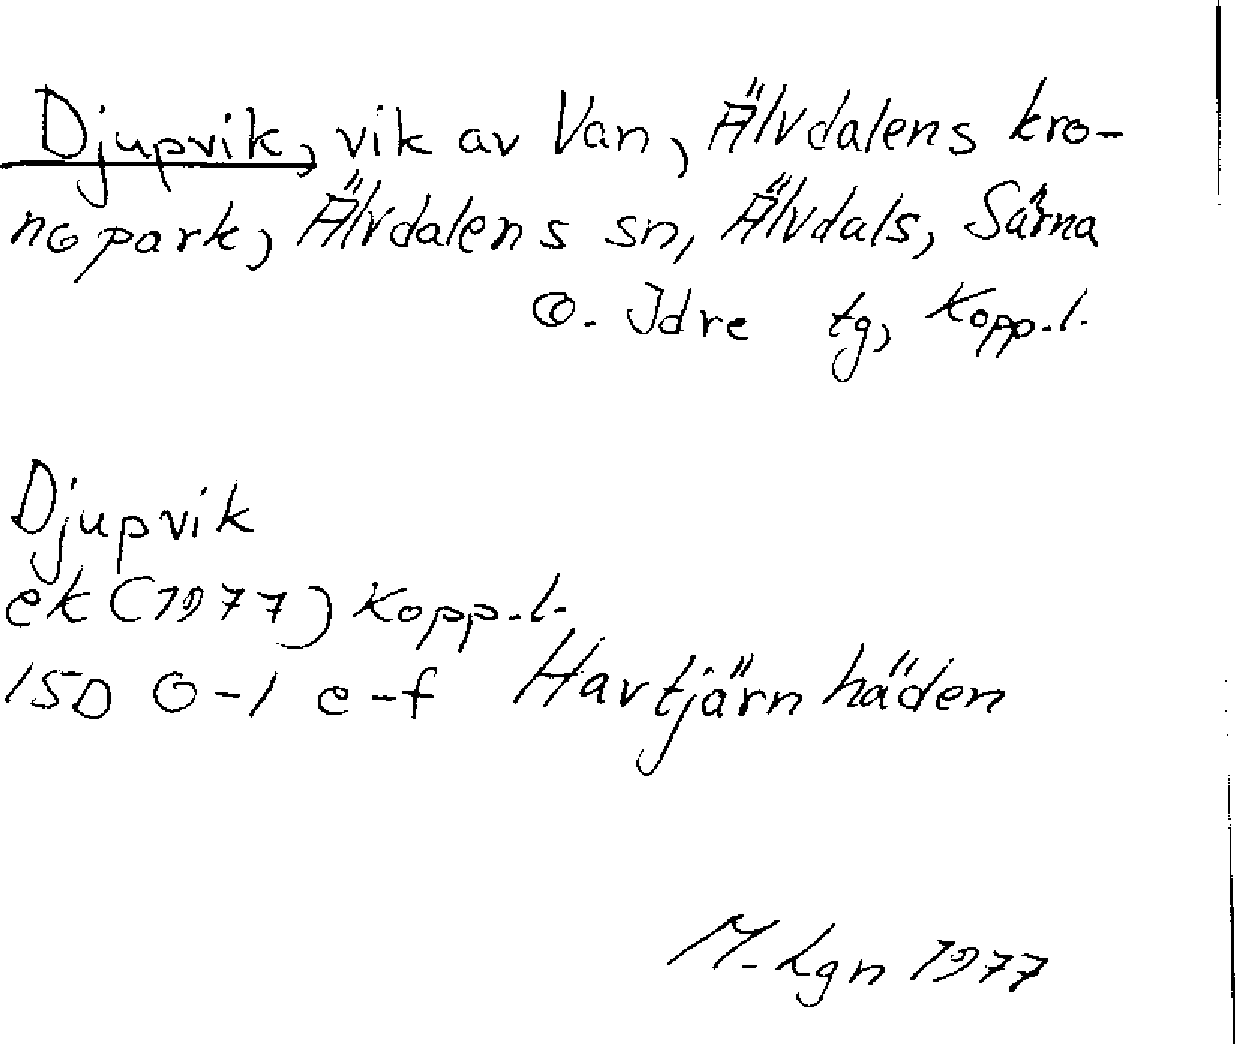 Djupvik, vik av Van, Älvdalens kro-
nopark, Älvdalens sn, Älvdals, Särna
o. Idre tg, Kopp.l.
Djupvik
ek (1977) Kopp.l.
15D 0-1 e-f Havtjärnhäden
M-Lgn 1977